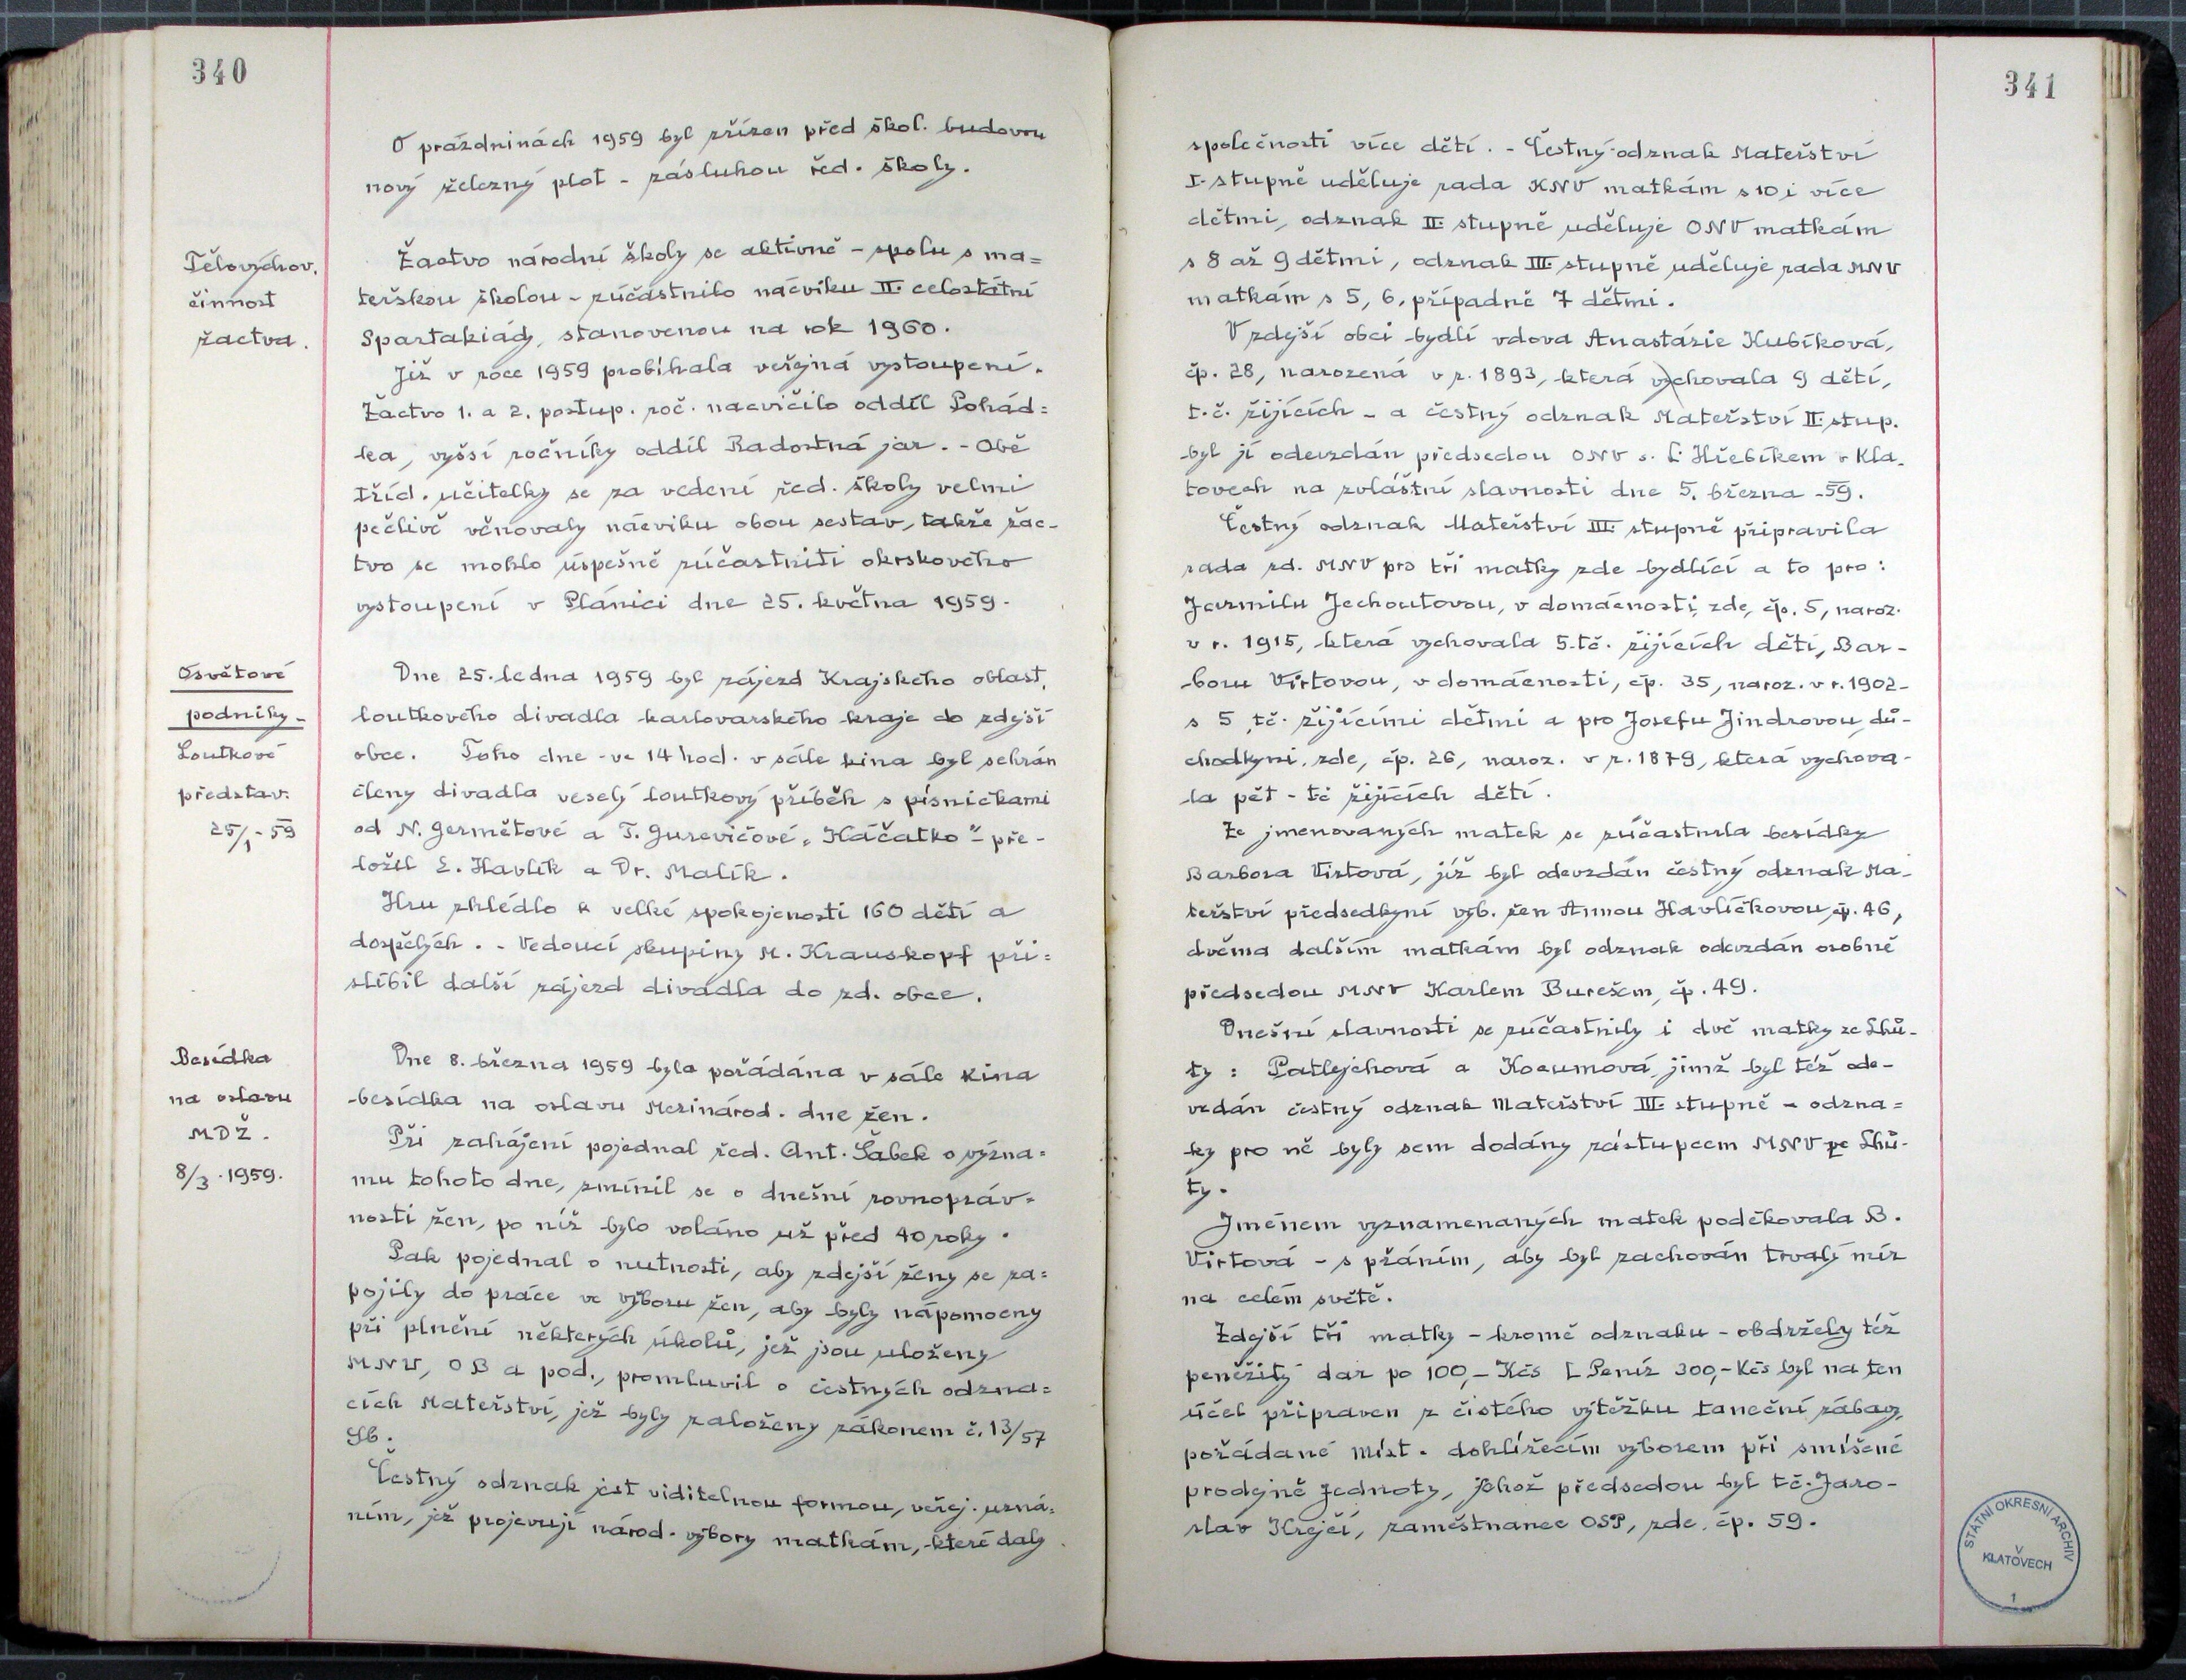 340
O prázdninách 1959 byl zřízen před škol. budovou
nový železný plot - zásluhou řed. školy.
Tělovýchov.
činnost
žactva.
Žactvo národní školy se aktivně - spolu s ma=
teřskou školou - zúčástnilo nácviku II. celostátní
Spartakiády, stanovenou na rok 1960.
Již v roce 1959 probíhala veřejná vystoupení.
Žactvo 1. a 2. postup. roč. nacvičilo oddíl Pohád=
ka, vyšší ročníky oddíl Radostná jar. - Obě
tříd. učitelky se za vedení řed. školy velmi
pečlivě věnovaly nácviku obou sestav, takže žac-
tvo se mohlo úspešně zúčastniti okrskového
vystoupení v Plánici dne 25. května 1959.
Osvětové
podniky -
Loutkové
představ.
25/1 - 59
Dne 25. ledna 1959 byl zájezd Krajského oblast.
loutkového divadla karlovarského kraje do zdejší
obce. Toho dne - ve 14 hod. v sále kina byl sehrán
členy divadla veselý loutkový příběh s písničkami
od N. Germětové a T. Gurevičové „Káčatko" - pře-
ložil E. Havlík a Dr. Malík.
Hru zhlédlo k velké spokojenosti 160 dětí a
dospělých. - Vedoucí skupiny M. Krauskopf při=
slíbil další zájezd divadla do zd. obce.
Besídka
na oslavu
MDŽ.
8/3. 1959.
Dne 8. března 1959 byla pořádána v sále kina
besídka na oslavu Mezinárod. dne žen.
Při zahájení pojednal řed. Ant. Šabek o význa=
mu tohoto dne, zmínil se o dnešní rovnopráv=
nosti žen, po níž bylo voláno už před 40 roky.
Pak pojednal o nutnosti, aby zdejší ženy se za=
pojily do práce ve výboru žen, aby byly nápomocny
při plnění některých úkolů, jež jsou uloženy
MNV, OB a pod., promluvil o čestných odzna=
cích Mateřství, jež byly založeny zákonem č. 13/57
Sb.
Čestný odznak jest viditelnou formou, veřej. uzná=
ním, jež projevují národ. výbory matkám, které daly
341
společnosti více dětí. - Čestný odznak Mateřství
I. stupně uděluje rada KNV matkám s 10 i více
dětmi, odznak II. stupně uděluje ONV matkám
s 8 až 9 dětmi, odznak III. stupně uděluje rada MNV
matkám s 5, 6, případně 7 dětmi.
V zdejší obci bydlí vdova Anastázie Kubíková,
čp. 28, narozená v r. 1893, která vychovala 9 dětí,
t.č. žijících - a čestný odznak Mateřství II. stup.
byl jí odevzdán předsedou ONV s. L. Hřebíkem v Kla-
tovech na zvláštní slavnosti dne 5. března -59.
Čestný odznak Mateřství III. stupně připravila
rada zd. MNV pro tři matky zde bydlící a to pro:
Jarmilu Jechoutovou, v domácnosti, zde, čp. 5, naroz.
v r. 1915, která vychovala 5. tč. žijících dětí, Bar-
boru Virtovou, v domácnosti, čp. 35, naroz. v r. 1902-
s 5 tč. žijícími dětmi a pro Josefu Jindrovou, dů-
chodkyni, zde, čp. 26, naroz. v r. 1879, která vychova-
la pět - tč žijících dětí.
Ze jmenovaných matek se zúčastnila besídky
Barbora Virtová, jíž byl odevzdán čestný odznak Ma-
teřství předsedkyní výb. žen Annou Havlíčkovou, čp. 46,
dvěma dalším matkám byl odznak odevzdán osobně
předsedou MNV Karlem Burešem, čp. 49.
Dnešní slavnosti se zúčastnily i dvě matky ze Lhů-
ty: Patlejchová a Kocumová, jimž byl též ode-
vzdán čestný odznak Mateřství III. stupně - odzna=
ky pro ně byly sem dodány zástupcem MNV ze Lhů-
ty.
Jménem vyznamenaných matek poděkovala B.
Virtová - s přáním, aby byl zachován trvalý mír
na celém světě.
Zdejší tři matky - kromě odznaku - obdržely též
peněžitý dar po 100,- Kčs [ Peníz 300,- Kčs byl na ten
účel připraven z čistého výtěžku taneční zábavy,
pořádané míst. dohlížecím výborem při smíšené
prodejně Jednoty, jehož předsedou byl tč. Jaro-
slav Krejčí, zaměstnanec OSP, zde, čp. 59.
STÁTNÍ OKRESNÍ ARCHIV
V
KLATOVECH
1